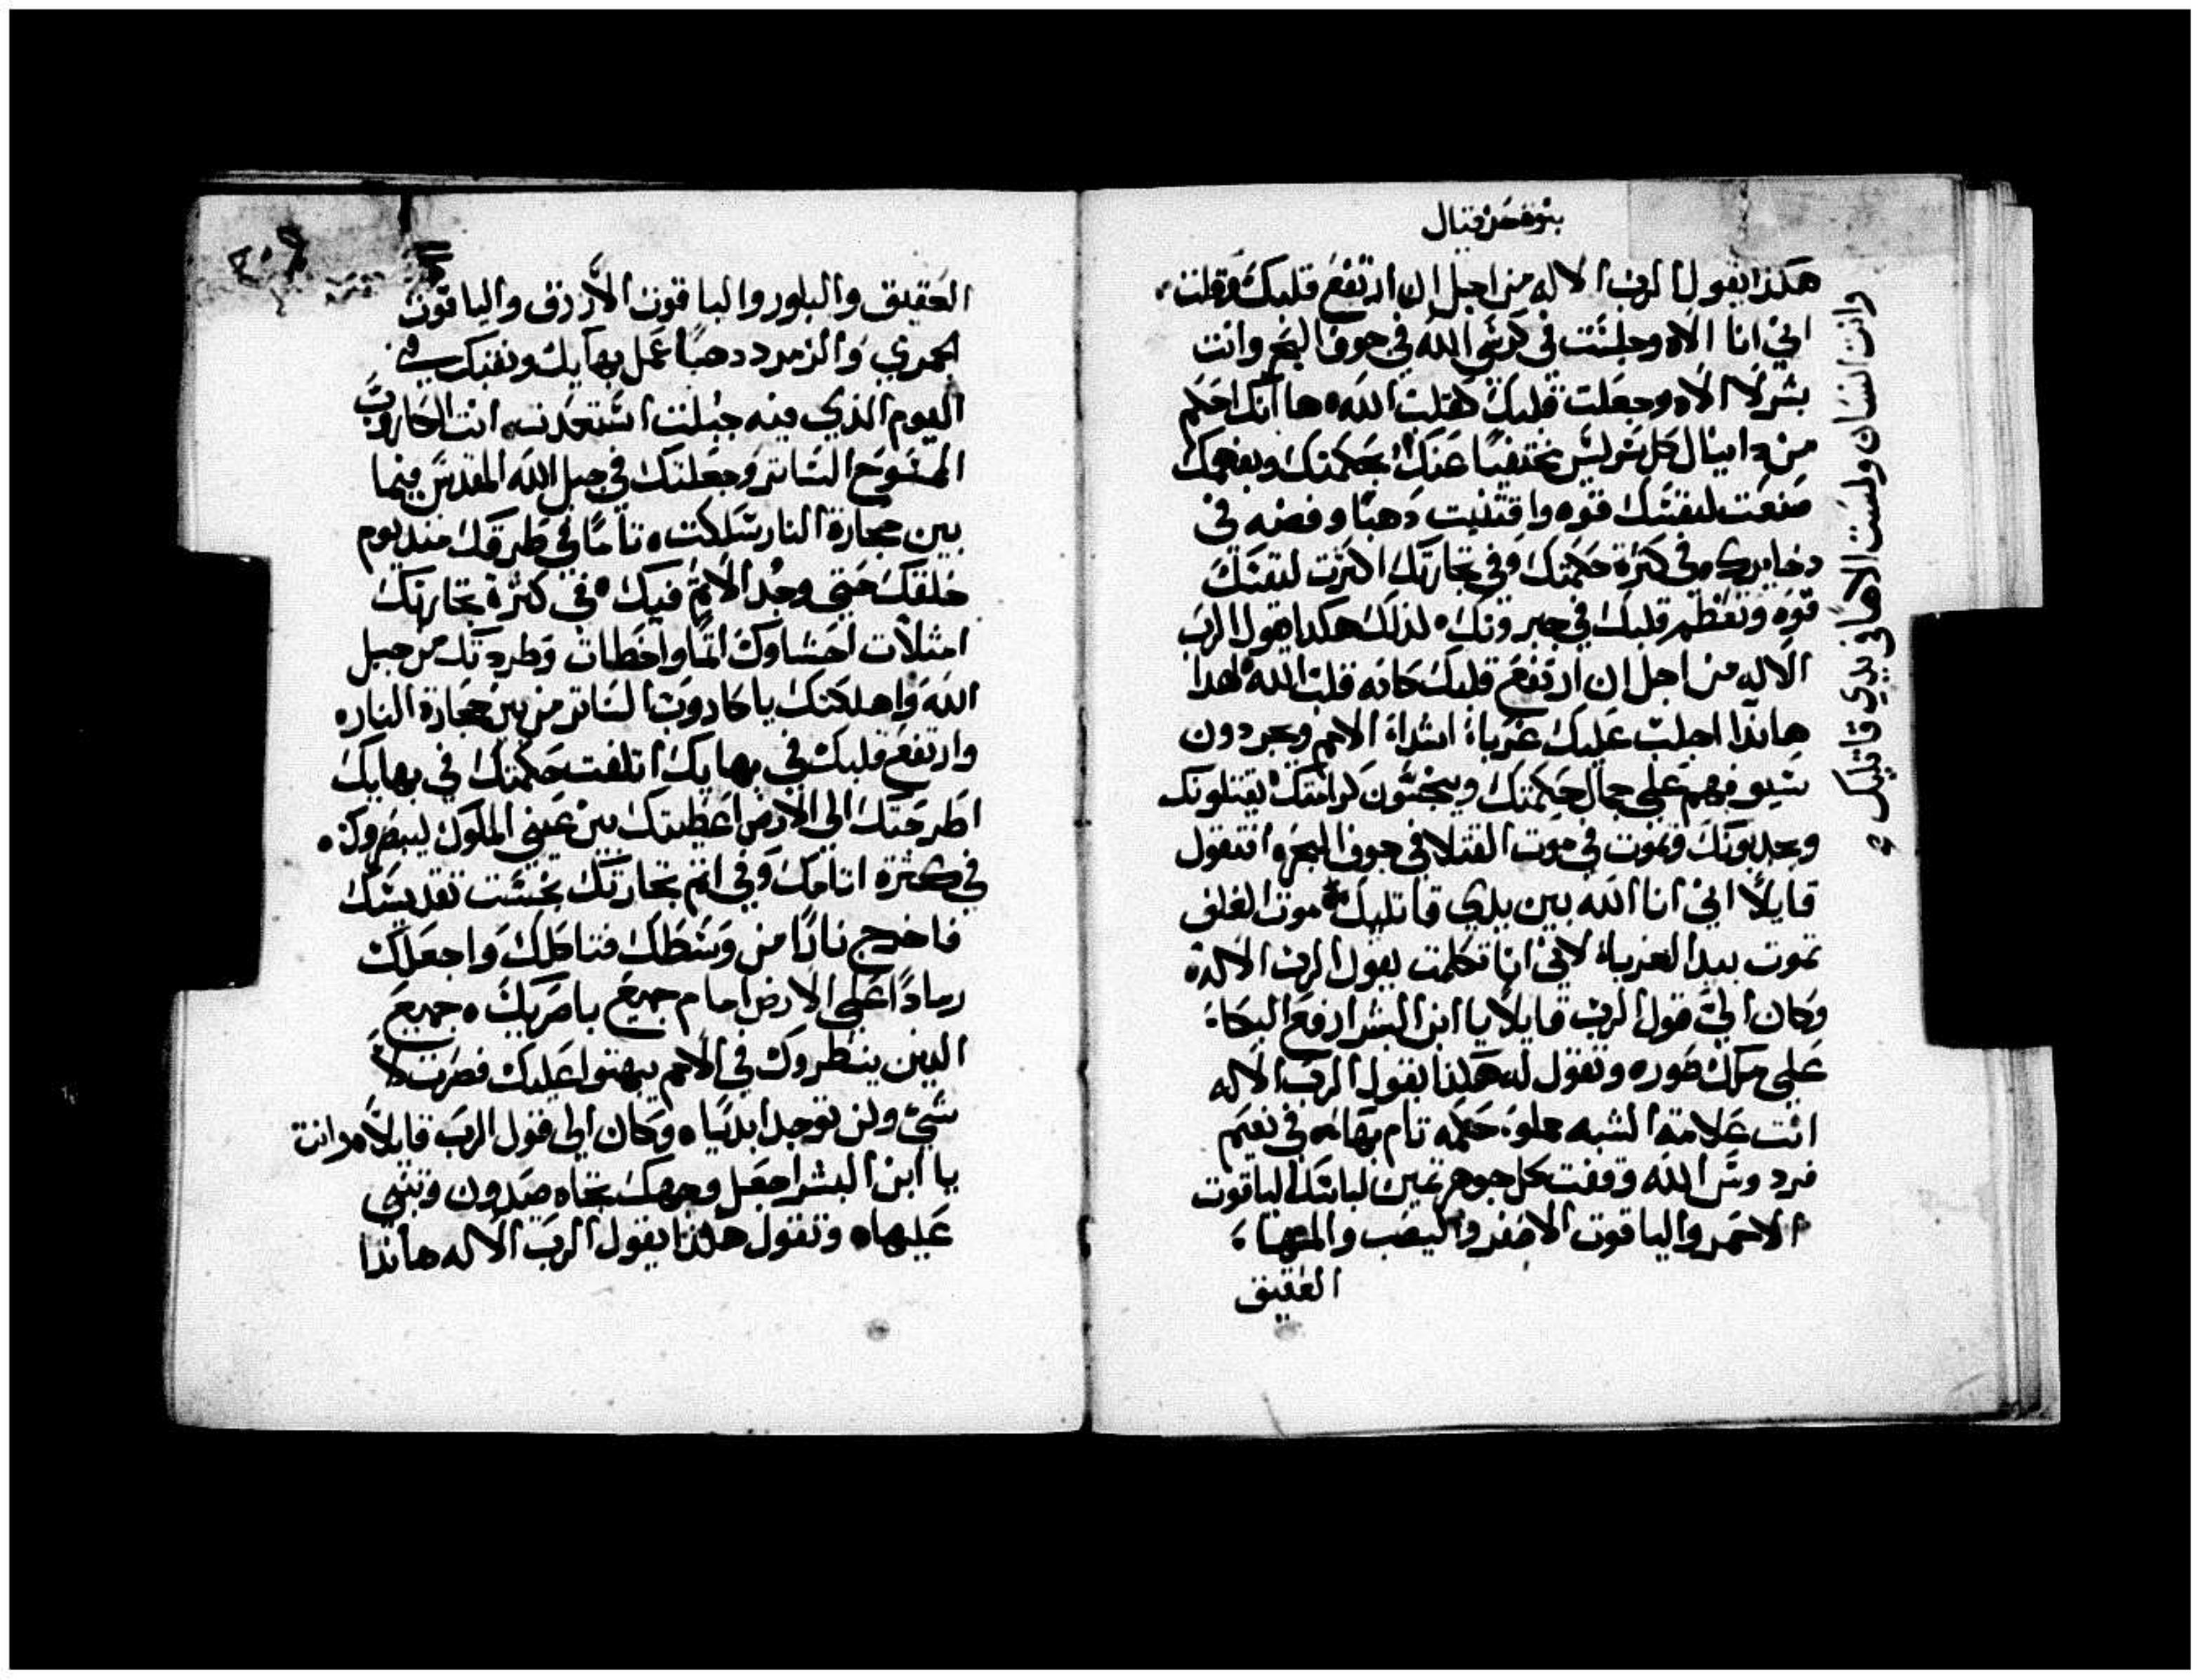 هكذا يقول الرب الاله من اجل ان ارتفع قلبك وقلت
اني انا الاه وجلست في كرسي الله في جوف البحر وانت
بشر لا الاه وجعلت قلبك كقلب الله ها انك احكم
من دانيال كل سر ليس مختفيا عنك بحكمتك وبفهمك
صنعت لنفسك قوه واقتنيت دهبا وفضه في
دخايرك وفي كثرة حكمتك وفي تجارتك اكثرت لنفسك
قوه وتعظم قلبك في جبروتك لذلك هكدا يقول الرب
الاله من اجل ان ارتفع قلبك كانه قلب الله لهدا
هانذا اجلب عليك غرباء اشداء الامم ويجردون
سيوفهم على جمال حكمتك وينجسون كرامتك يقتلونك
ويجدبونك وتموت في موت القتلا في جوف البحر افتقول
قايلا اني انا الله بين يدي قاتليك موت الغلف
تموت بيد الغرباء لاني انا تكلمت يقول الرب الاله
وكان الي قول الرب قايلا يا ابن البشر ارفع البكاء
على ملك صوره وتقول له هكذا يقول الرب الاله
انت علامة الشبه مملوء حكمه تام بهاء في نعيم
فردوس الله وقفت كل جوهر ثمين لباسك الياقوت
الاحمر والياقوت الاصفر واليصب والمها
العقيق
وانت انسان ولست الاها في يدي قاتليك
العقيق والبلور والياقوت الازرق والياقوت
الجمري والزمرد دهبا عمل بهايك ونقبك في
اليوم الذي فيه جبلت استعدت انت الكاروب
الممسوح الساتر وجعلتك في جبل الله المقدس فيما
بين حجارة النار سلكت تاما في طرقك منذ يوم
خلقك حتى وجد الاثم فيك في كثرة تجارتك
امتلات احشاوك اثما واخطات وطردتك من جبل
الله واهلكتك يا كاروب الساتر من بين حجارة النار
وارتفع قلبك في بهايك اتلفت حكمتك في بهايك
اطرحتك الى الارض اعطيتك بين عيني الملوك ليبصروك
في كثرة اثامك وفي اثم تجارتك نجست تقديسك
فاخرج نارا من وسطك فتاكلك واجعلك
رمادا على الارض امام جميع باصريك جميع
الدين ينظروك في الامم يبهتوا عليك فصرت لا
شي ولن توجد ابديا وكان الي قول الرب قايلا وانت
يا ابن البشر اجعل وجهك تجاه صيدون وتنبي
عليها وتقول هكذا يقول الرب الاله هانذا